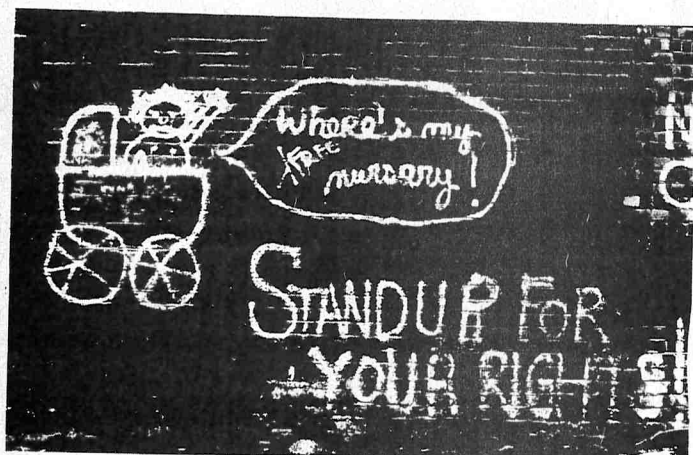 Where's my
FREE
nursary!
STAND UP FOR
YOUR RIGHTS!